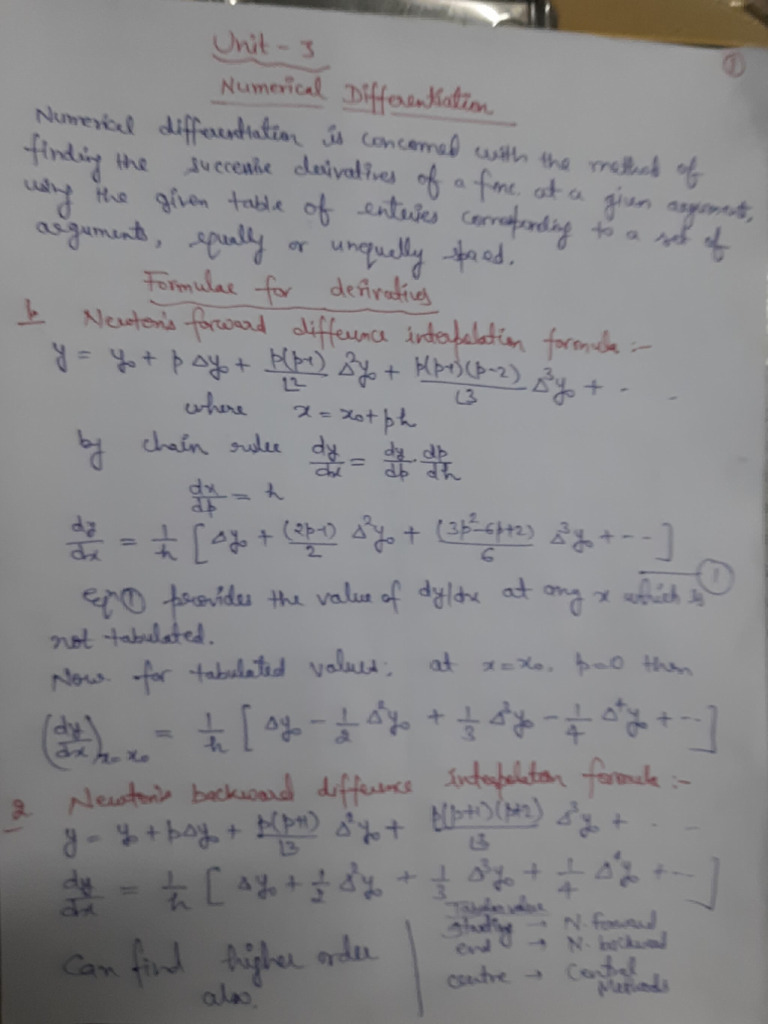 Unit - 3
①
Numerical Differentiation
Numerical differentiation is concerned with the method of
finding the successive derivatives of a func. at a given argument,
using the given table of enteries corresponding to a set of
arguments, equally or unequally spaced.
Formulae for derivatives
1. Newton's forward difference interpolation formula :-
y = y₀ + pΔy₀ + p(p-1)/⌊2 Δ²y₀ + p(p-1)(p-2)/⌊3 Δ³y₀ + - -
where x = x₀ + ph
by chain rule dy/dx = dy/dp . dp/dh
dx/dp = h
dy/dx = 1/h [Δy₀ + (2p-1)/2 Δ²y₀ + (3p²-6p+2)/6 Δ³y₀ + ---] — ①
Eqⁿ ① provides the value of dy/dx at any x which is
not tabulated.
Now for tabulated values; at x = x₀, p=0 then
(dy/dx)x=x₀ = 1/h [Δy₀ - 1/2 Δ²y₀ + 1/3 Δ³y₀ - 1/4 Δ⁴y₀ + --]
2 Newton's backward difference interpolation formula :-
y = y₀ + pΔy₀ + p(p+1)/⌊3 Δ²y₀ + p(p+1)(p+2)/⌊3 Δ³y₀ + - -
dy/dx = 1/h [Δy₀ + 1/2 Δ²y₀ + 1/3 Δ³y₀ + 1/4 Δ⁴y₀ + --]
Can find higher order
also.
Tabular value
starting → N. forward
end → N. backward
centre → Central
Methods